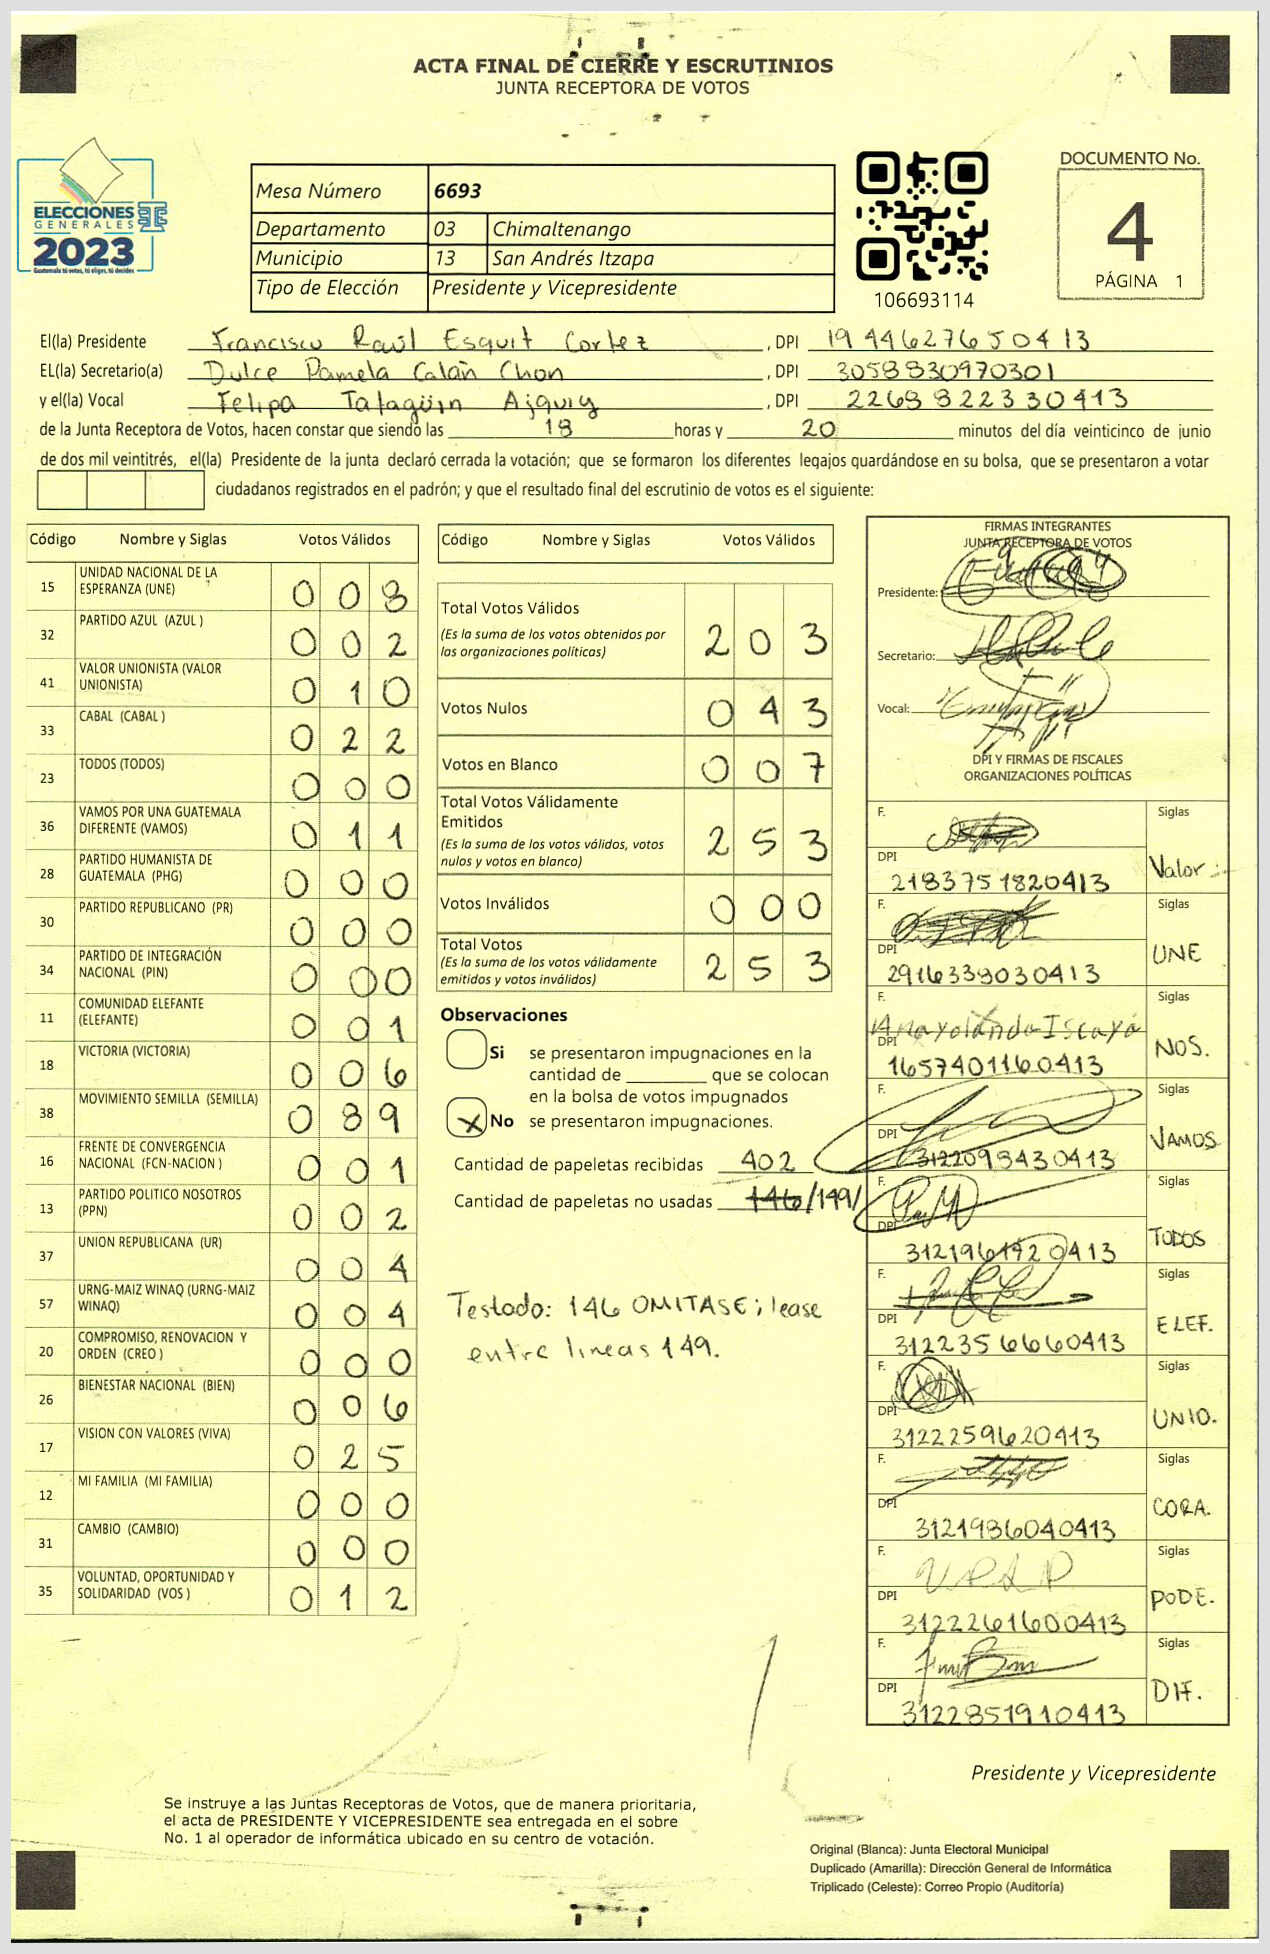 ACTA FINAL DE CIERRE Y ESCRUTINIOS
JUNTA RECEPTORA DE VOTOS
ELECCIONES
GENERALES
2023
Guatemala tú votas, tú eliges, tú decides
Mesa Número 6693
Departamento 03 Chimaltenango
Municipio 13 San Andrés Itzapa
Tipo de Elección Presidente y Vicepresidente
106693114
DOCUMENTO No.
4
PÁGINA 1
El(la) Presidente Francisco Raúl Esquit Cortez , DPI 1944627650413
EL(la) Secretario(a) Dulce Pamela Calán Chon , DPI 3058830970301
y el(la) Vocal Felipa Tafagüin Ajquiy , DPI 2268822330413
de la Junta Receptora de Votos, hacen constar que siendo las 18 horas y 20 minutos del día veinticinco de junio
de dos mil veintitrés, el(la) Presidente de la junta declaró cerrada la votación; que se formaron los diferentes legajos guardándose en su bolsa, que se presentaron a votar
ciudadanos registrados en el padrón; y que el resultado final del escrutinio de votos es el siguiente:
Código Nombre y Siglas Votos Válidos
15 UNIDAD NACIONAL DE LA ESPERANZA (UNE) 0 0 8
32 PARTIDO AZUL (AZUL ) 0 0 2
41 VALOR UNIONISTA (VALOR UNIONISTA) 0 1 0
33 CABAL (CABAL ) 0 2 2
23 TODOS (TODOS) 0 0 0
36 VAMOS POR UNA GUATEMALA DIFERENTE (VAMOS) 0 1 1
28 PARTIDO HUMANISTA DE GUATEMALA (PHG) 0 0 0
30 PARTIDO REPUBLICANO (PR) 0 0 0
34 PARTIDO DE INTEGRACIÓN NACIONAL (PIN) 0 0 0
11 COMUNIDAD ELEFANTE (ELEFANTE) 0 0 1
18 VICTORIA (VICTORIA) 0 0 6
38 MOVIMIENTO SEMILLA (SEMILLA) 0 89
16 FRENTE DE CONVERGENCIA NACIONAL (FCN-NACION ) 0 0 1
13 PARTIDO POLITICO NOSOTROS (PPN) 0 0 2
37 UNION REPUBLICANA (UR) 0 0 4
57 URNG-MAIZ WINAQ (URNG-MAIZ WINAQ) 0 0 4
20 COMPROMISO, RENOVACION Y ORDEN (CREO ) 0 0 0
26 BIENESTAR NACIONAL (BIEN) 0 0 6
17 VISION CON VALORES (VIVA) 0 2 5
12 MI FAMILIA (MI FAMILIA) 0 0 0
31 CAMBIO (CAMBIO) 0 0 0
35 VOLUNTAD, OPORTUNIDAD Y SOLIDARIDAD (VOS ) 0 1 2
Código Nombre y Siglas Votos Válidos
Total Votos Válidos 2 0 3
(Es la suma de los votos obtenidos por
las organizaciones políticas)
Votos Nulos 0 4 3
Votos en Blanco 0 0 7
Total Votos Válidamente
Emitidos 2 5 3
(Es la suma de los votos válidos, votos
nulos y votos en blanco)
Votos Inválidos 0 0 0
Total Votos 2 5 3
(Es la suma de los votos válidamente
emitidos y votos inválidos)
Observaciones
Si se presentaron impugnaciones en la
cantidad de ________ que se colocan
en la bolsa de votos impugnados
X No se presentaron impugnaciones.
Cantidad de papeletas recibidas 402
Cantidad de papeletas no usadas 146/149/
Testado: 146 OMITASE; lease
entre lineas 149.
FIRMAS INTEGRANTES
JUNTA RECEPTORA DE VOTOS
Presidente:
Secretario:
Vocal:
DPI Y FIRMAS DE FISCALES
ORGANIZACIONES POLÍTICAS
F. Siglas
DPI 2183751820413 Valor
F. Siglas
DPI 2916339030413 UNE
F. Ana yolanda Iscayá Siglas
DPI 1657401160413 NOS.
F. Siglas
DPI 3122093430413 VAMOS
F. Siglas
DPI 3121961920413 TODOS
F. Siglas
DPI 3122356660413 ELEF.
F. Siglas
DPI 3122259620413 UNIO.
F. Siglas
DPI 3121986040413 CORA.
F. Siglas
DPI 3122261600413 PODE.
F. Siglas
DPI 3122851910413 DIF.
Presidente y Vicepresidente
Se instruye a las Juntas Receptoras de Votos, que de manera prioritaria,
el acta de PRESIDENTE Y VICEPRESIDENTE sea entregada en el sobre
No. 1 al operador de informática ubicado en su centro de votación.
Original (Blanca): Junta Electoral Municipal
Duplicado (Amarilla): Dirección General de Informática
Triplicado (Celeste): Correo Propio (Auditoría)